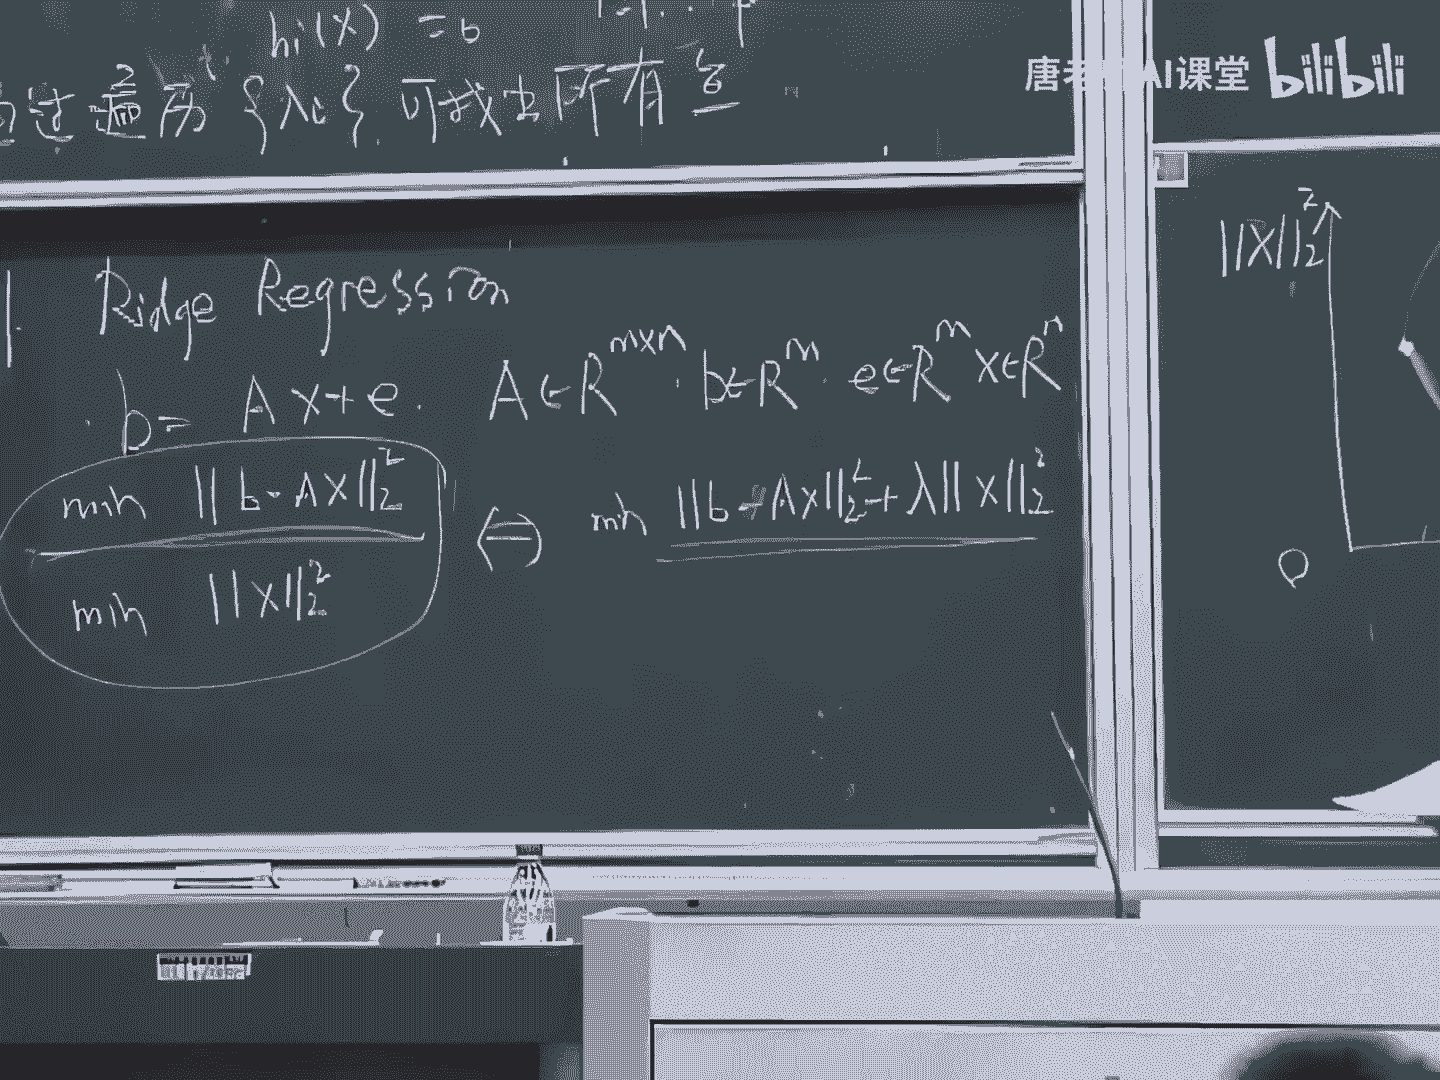 hi(x) = 0
过遍历 {λi} 可找出所有
唐老 AI课堂 bilibili
1. Ridge Regression
b = Ax + e. A ∈ R^{m×n}. b ∈ R^m. e ∈ R^m x ∈ R^n
min ||b - Ax||_2^2 ⇔ min ||b - Ax||_2^2 + λ||x||_2^2
min ||x||_2^2
||x||_2^2
0